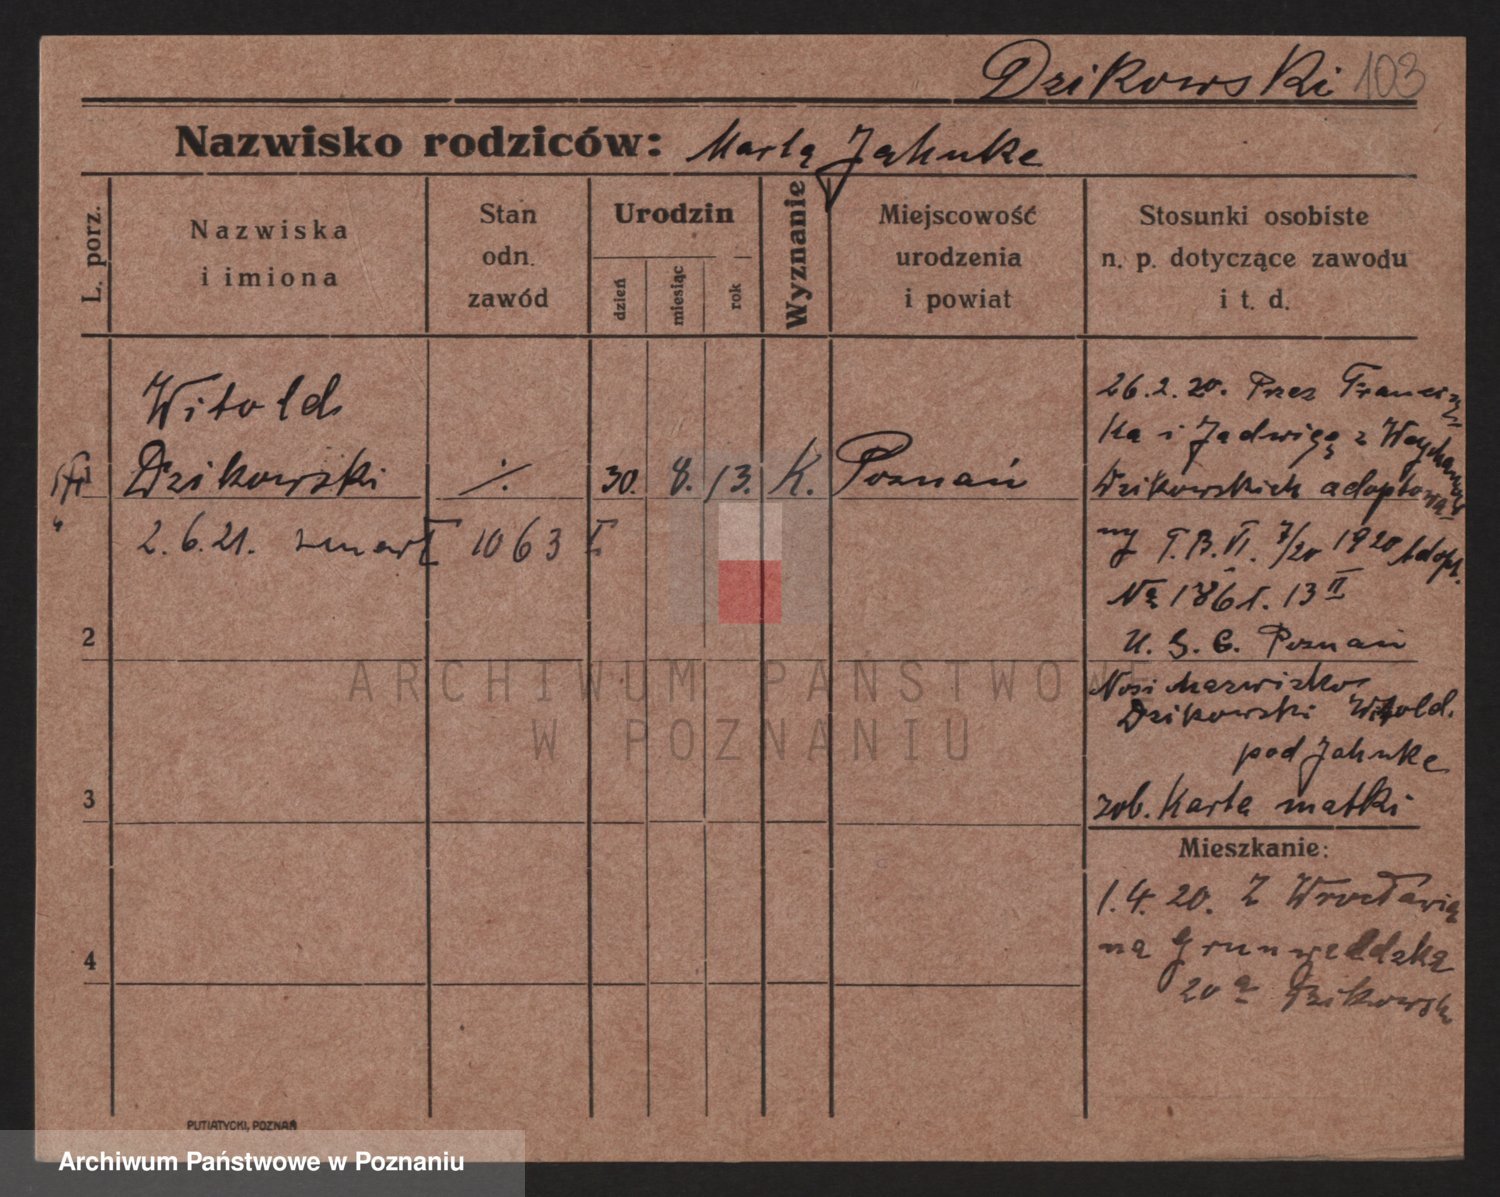 Dzikowski 103
Nazwisko rodziców: Marta Jahnke
L. porz.
Nazwiska
i imiona
Stan
odn.
zawód
Urodzin
dzień
miesiąc
rok
Wyznanie
Miejscowość
urodzenia
i powiat
Stosunki osobiste
n. p. dotyczące zawodu
i t. d.
Witold
Dzikowski ·/. 30. 8. 13. K. Poznań
2.6.21. zmarł 1063 I
2
3
4
26.2.20. Przez Francisz
ka i Jadwigę z
Dzikowskich adoptowa
ny T.B.VI. 7/20 1920 Adopt.
13 II
Poznań
Nosi nazwisko
Dzikowski Witold.
pod Jahnke
zob. Karta matki
Mieszkanie:
1.4.20. Z Wrocławia
na Grunwaldzka
20a Dzikowski
ARCHIWUM PAŃSTWOWE
W POZNANIU
PUTIATYCKI, POZNAŃ
Archiwum Państwowe w Poznaniu